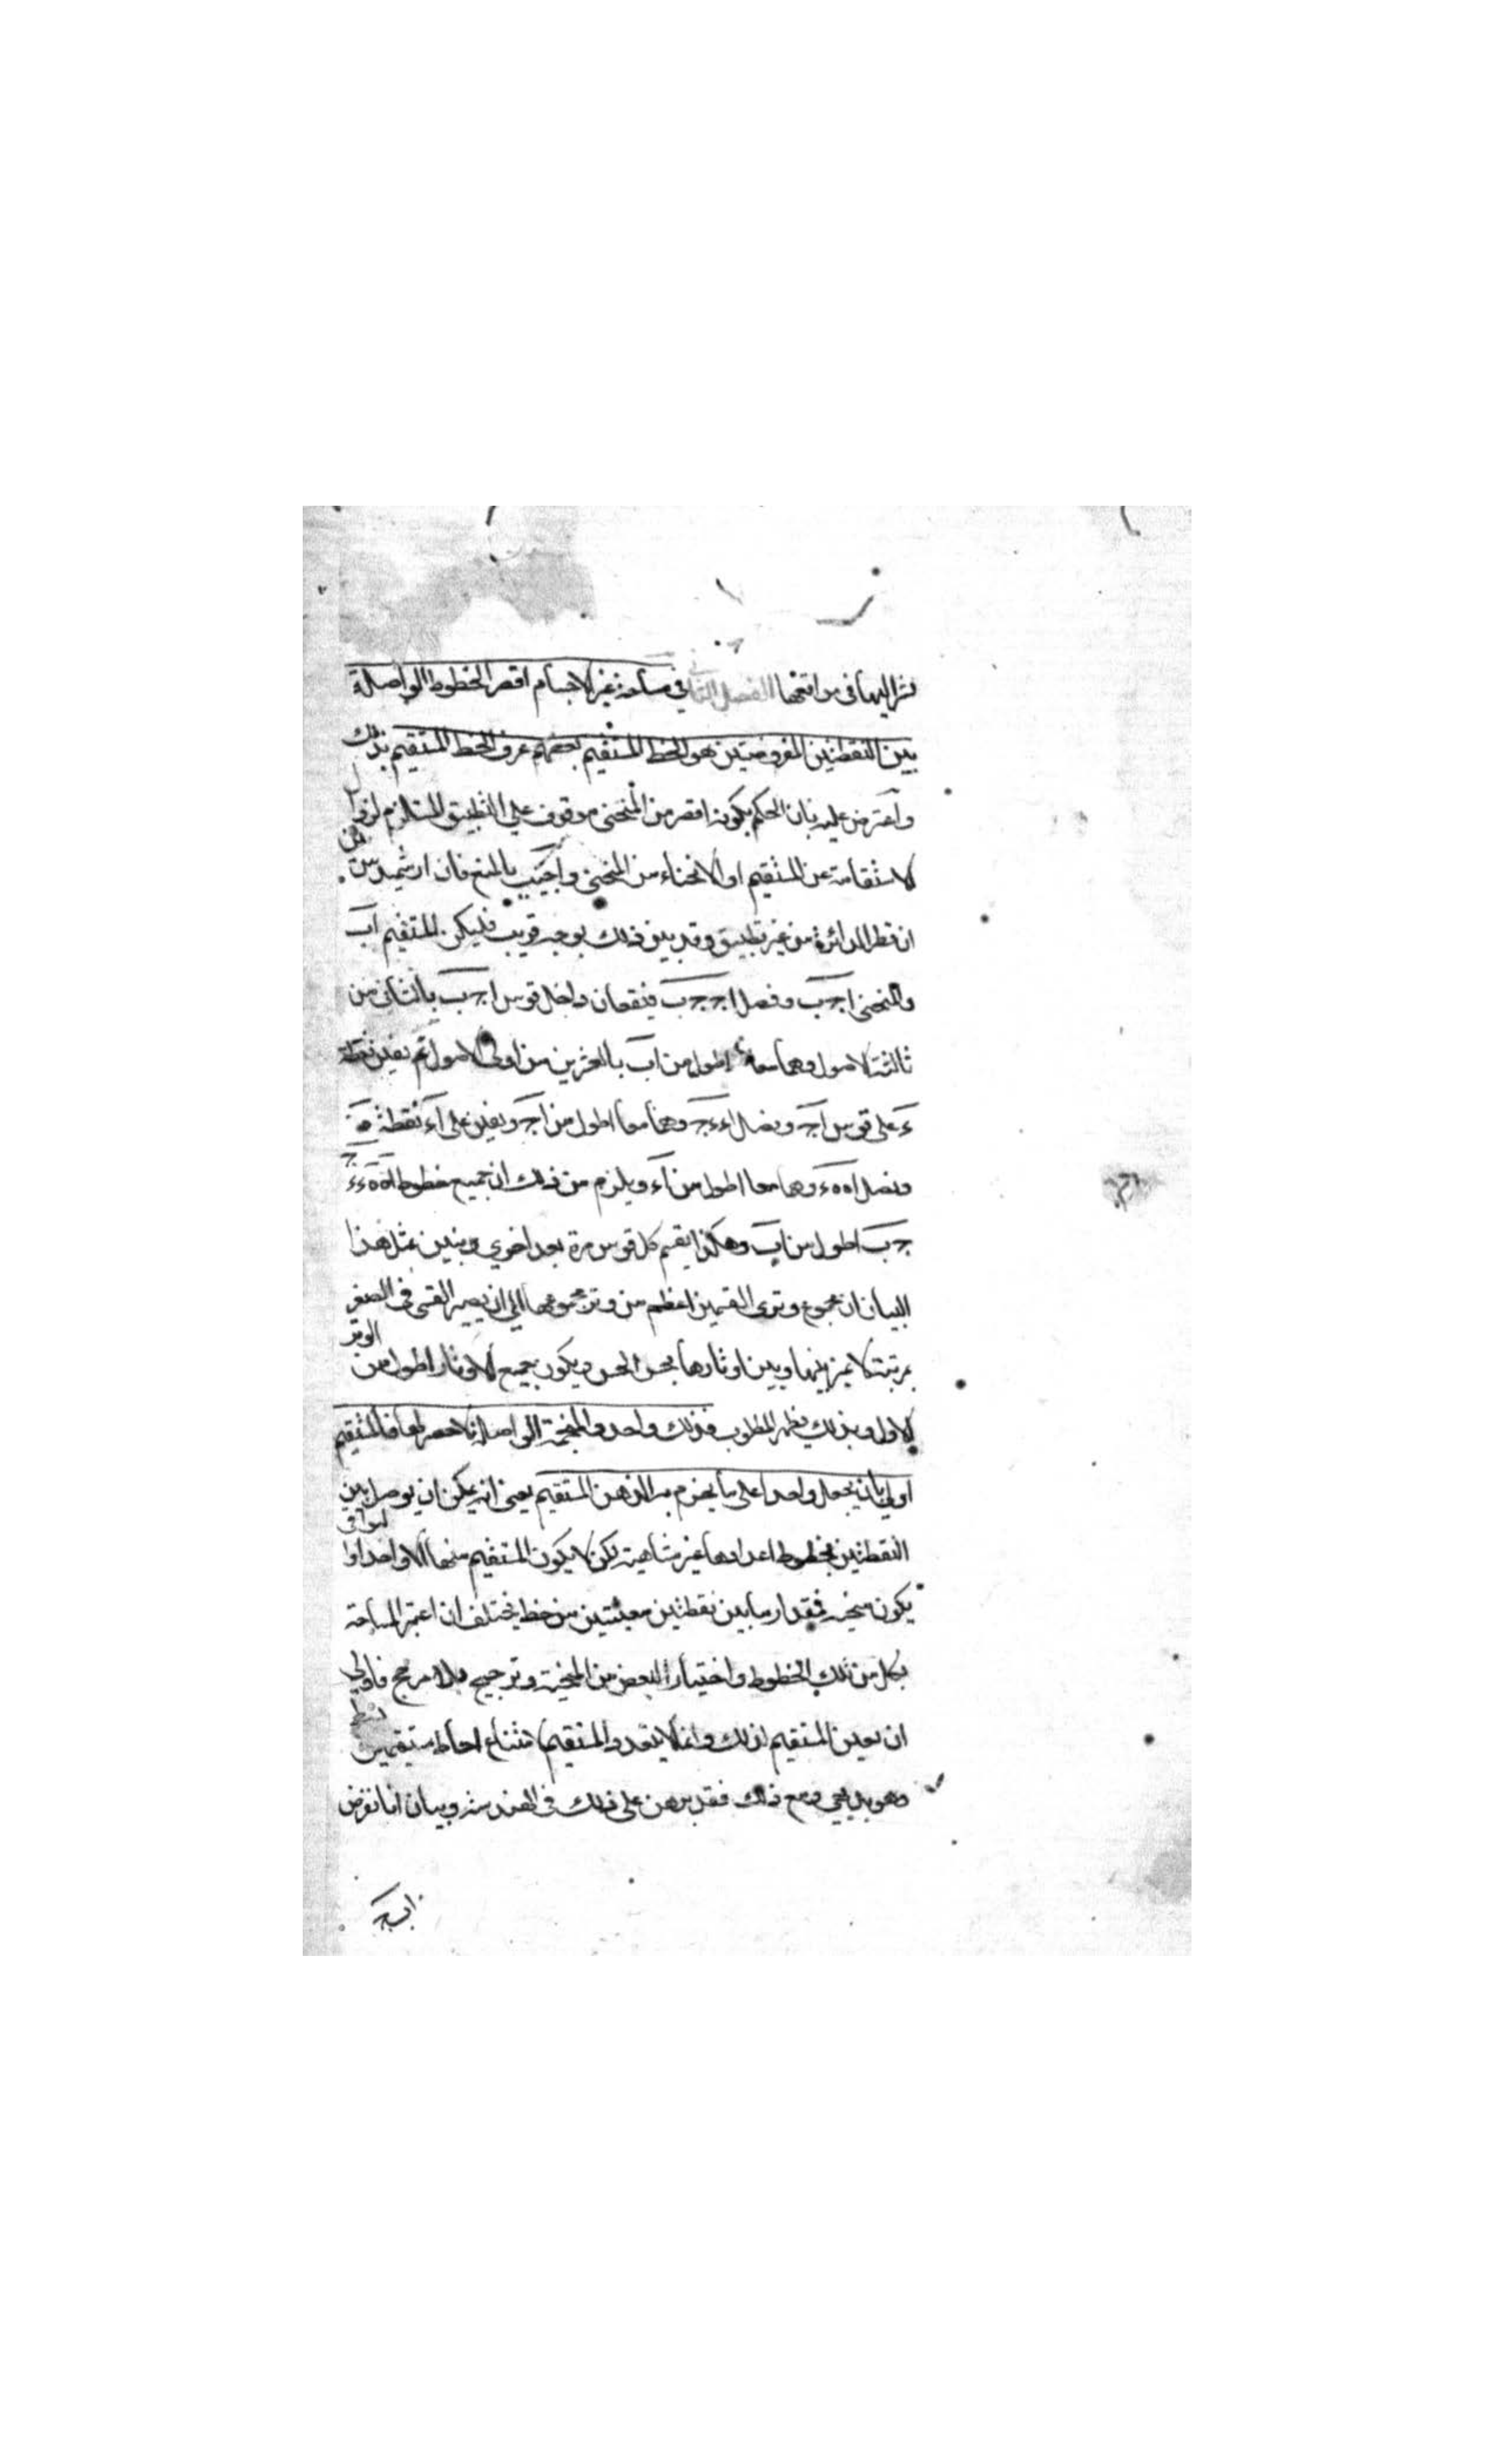 نشر اليها في مواقعها الفصل الثاني في مساحة غير الاجسام اقصر الخطوط الواصلة
بين النقطتين المفروضتين هو الخط المستقيم بعضهم عرف الخط المستقيم بذلك
واعترض عليه بان الحكم بكونه اقصر من المنحني موقوف على التطبيق المستلزم لزوال
الاستقامة عن المستقيم او الانحناء من المنحني واجيب بالمنع فان ارشميدس برهن
ان قطر الدائرة من غير تطبيق وقد يبين ذلك بوجه قريب فليكن المستقيم اب
والمنحني اجب ونصل اج جب فيقعان داخل قوس اجب بالثاني من
ثالثة الاصول وهما معا اطول من اب بالعشرين من اولى الاصول ثم نعين نقطة
ء على قوس اج ونصل اء ءج وهما معا اطول من اج ونعين على اء نقطة ه
ونصل اه هء وهما معا اطول من اء ويلزم من ذلك ان جميع خطوط اه هء ءج
جب اطول من اب وهكذا يقسم كل قوس مرة بعد اخرى ويتبين بمثل هذا
البيان ان مجموع وترى القسمين اعظم من وتر مجموعها الى ان يصير القسى في الصغر
بمرتبة لا يميز بينها وبين اوتارها بحس الحس ويكون جميع الاوتار اطول من الوتر
الاول وبذلك يظهر المطلوب فذلك واحد والمنحنية الواصلة لا حصر لها فالمستقيم
اولى بان يجعل واحدا على ما يجزم به الذهن المستقيم يعني انه يمكن ان يوصل بين
النقطتين بخطوط اعدادها غير متناهية لكن لا يكون المستقيم منها الا واحدا والبواقي
يكون منحنية فمقدار ما بين نقطتين معينتين من خط يختلف ان اعتبر المساحة
بكل من تلك الخطوط واختيار البعض من المنحنية وترجيح بلا مرجح فاولى
ان يعين المستقيم لذلك وانما لا يتعدد المستقيم لامتناع احاطة مستقيمين بسطح
وهو بديهي ومع ذلك فقد برهن على ذلك في الهندسة وبيان انا نفرض